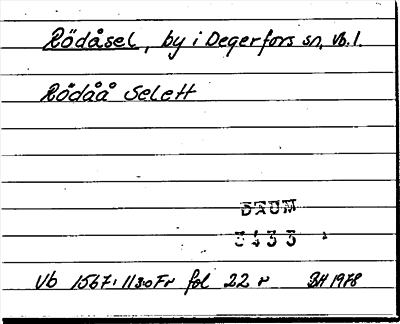 Rödåsel, by i Degerfors sn, Vb. l.
Rödåå Selett
DAUM
3433
Vb 1567: 1130 Fr fol 22 r BH 1978